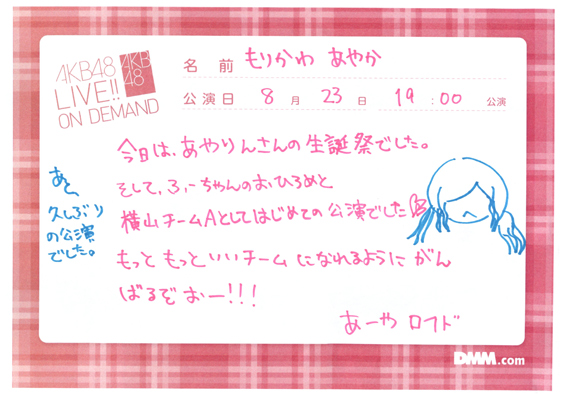 AKB48
LIVE!!
ON DEMAND
AKB
48
名 前 もりかわ あやか
公演日 8 月 23 日 19 : 00 公演
今日は、あやりんさんの生誕祭でした。
そして、ふぅーちゃんのおひろめと
横山チームAとしてはじめての公演でした
もっと もっといいチーム になれるように がん
ばるぞおー!!!
あーや ロフド
あと、
久しぶり
の公演
でした。
DMM.com